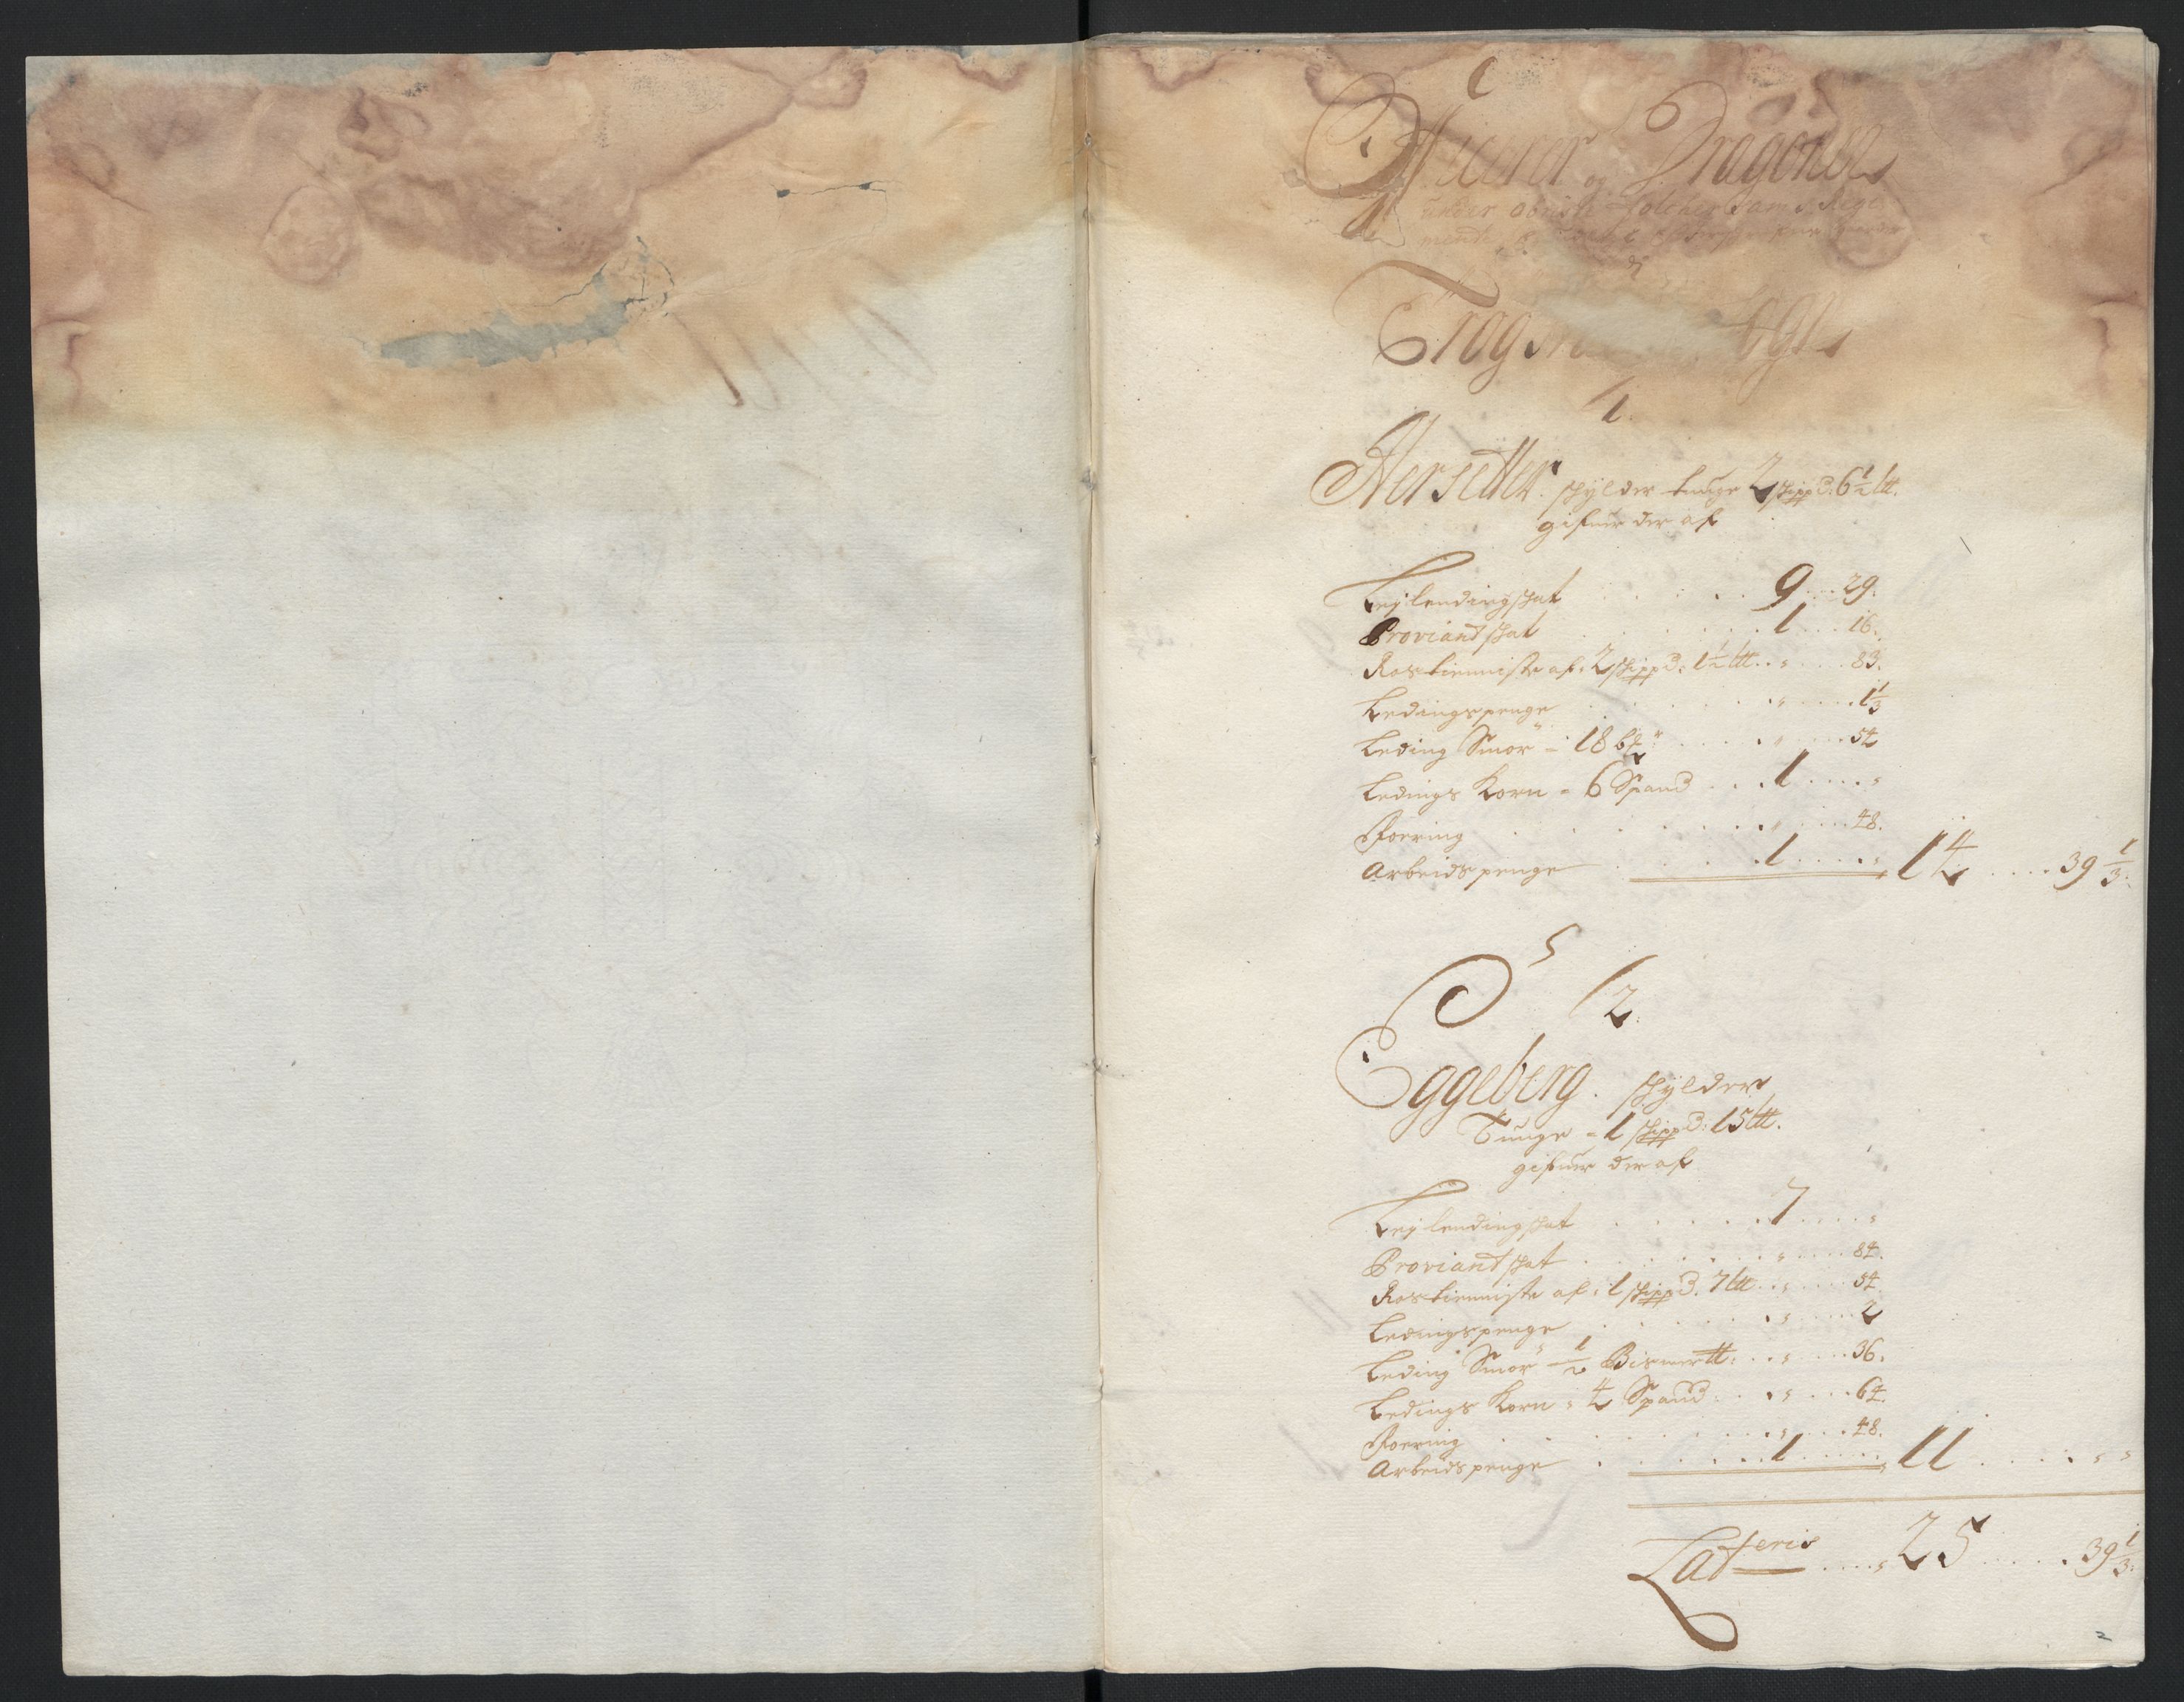 Officerer og Dragoner
under Obrist
1.
Aersetter. skylder tunge 2 skippd: 6½ ltt.
gifuer der af
Leylendingskat . . . 9 . . . 29.
Proviandskat . . . 1 . . . 16.
Rostienniste af: 2 skippd: 1½ ltt. . . „ . . . 83.
Ledingspenge . . . „ . . . 1⅓
Leding Smör - 18 . . . „ . . . 54
Ledings Korn - 6 Spand . . . 1 . . . „
Foering . . . „ . . . 48.
Arbeidspenge . . . 1 . . . „ 14 . . . 39⅓.
2.
Eggeberg. skylder
Tunge - 1 skippd: 15 ltt.
gifuer der af
Leylendingskat . . . 7 . . . „
Proviandskat . . . „ . . . 84.
Rostienniste af: 1 skippd. 7 ltt . . „ . . . 54.
Ledingspenge . . . „ . . . 2
Leding Smör - ½ Bismertt: . . „ . . . 36.
Ledings Korn - 4 Spand . . „ . . . 64.
Foering . . . „ . . . 48.
Arbeidspenge . . . 1 . . . „ 11 . . . „
Lateris . . . 25 . . . 39⅓.
2